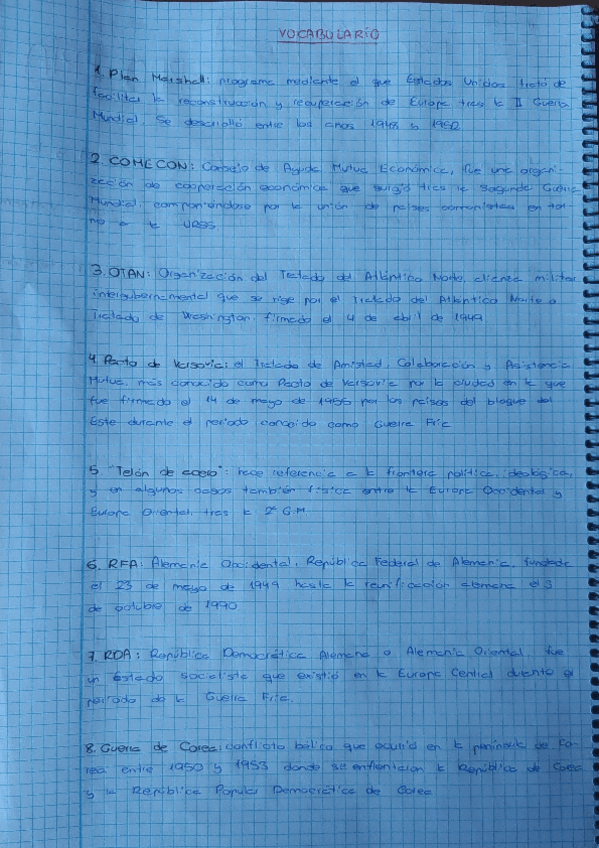 VOCABULARIO
1. Plan Marshall: programa mediante el que Estados Unidos trató de
facilitar la reconstrucción y recuperación de Europa tras la II Guerra
Mundial. Se desarrolló entre los años 1948 y 1952
2. COMECON: Consejo de Ayuda Mutua Económica, fue una organi-
zación de cooperación económica que surgió tras la Segunda Guerra
Mundial, componiéndose por la unión de países comunistas en tor-
no a la URSS
3. OTAN: Organización del Tratado del Atlántico Norte, alianza militar
intergubernamental que se rige por el Tratado del Atlántico Norte o
Tratado de Washington, firmado el 4 de abril de 1949
4. Pacto de Varsovia: el Tratado de Amistad, Colaboración y Asistencia
Mutua, más conocido como Pacto de Varsovia por la ciudad en la que
fue firmado el 14 de mayo de 1955 por los países del bloque del
Este durante el periodo conocido como Guerra Fría
5. "Telón de acero": hace referencia a la frontera política, ideológica,
y en algunos casos también física entre la Europa Occidental y
Europa Oriental, tras la 2ª G.M
6. RFA: Alemania Occidental, República Federal de Alemania, fundada
el 23 de mayo de 1949 hasta la reunificación alemana el 3
de octubre de 1990
7. RDA: República Democrática Alemana o Alemania Oriental, fue
un estado socialista que existió en la Europa Central durante el
periodo de la Guerra Fría.
8. Guerra de Corea: conflicto bélico que ocurrió en la península de Co-
rea entre 1950 y 1953 donde se enfrentaron la República de Corea
y la República Popular Democrática de Corea